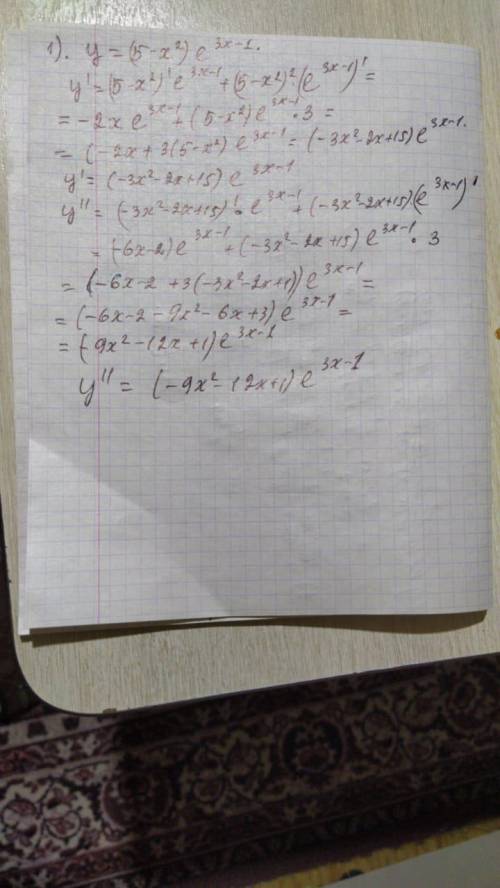 1). y = (5-x²) e^{3x-1}.
y' = (5-x²)' e^{3x-1} + (5-x²)² (e^{3x-1})' =
= -2x e^{3x-1} + (5-x²) e^{3x-1} · 3 =
= (-2x + 3(5-x²) e^{3x-1} = (-3x²-2x+15) e^{3x-1}.
y' = (-3x²-2x+15) e^{3x-1}
y'' = (-3x²-2x+15)' · e^{3x-1} + (-3x²-2x+15)(e^{3x-1})'
= (-6x-2) e^{3x-1} + (-3x²-2x+15) e^{3x-1} · 3
= (-6x-2 + 3(-3x²-2x+1)) e^{3x-1} =
= (-6x-2-9x²-6x+3) e^{3x-1} =
= (-9x²-12x+1) e^{3x-1}
y'' = (-9x²-12x+1) e^{3x-1}